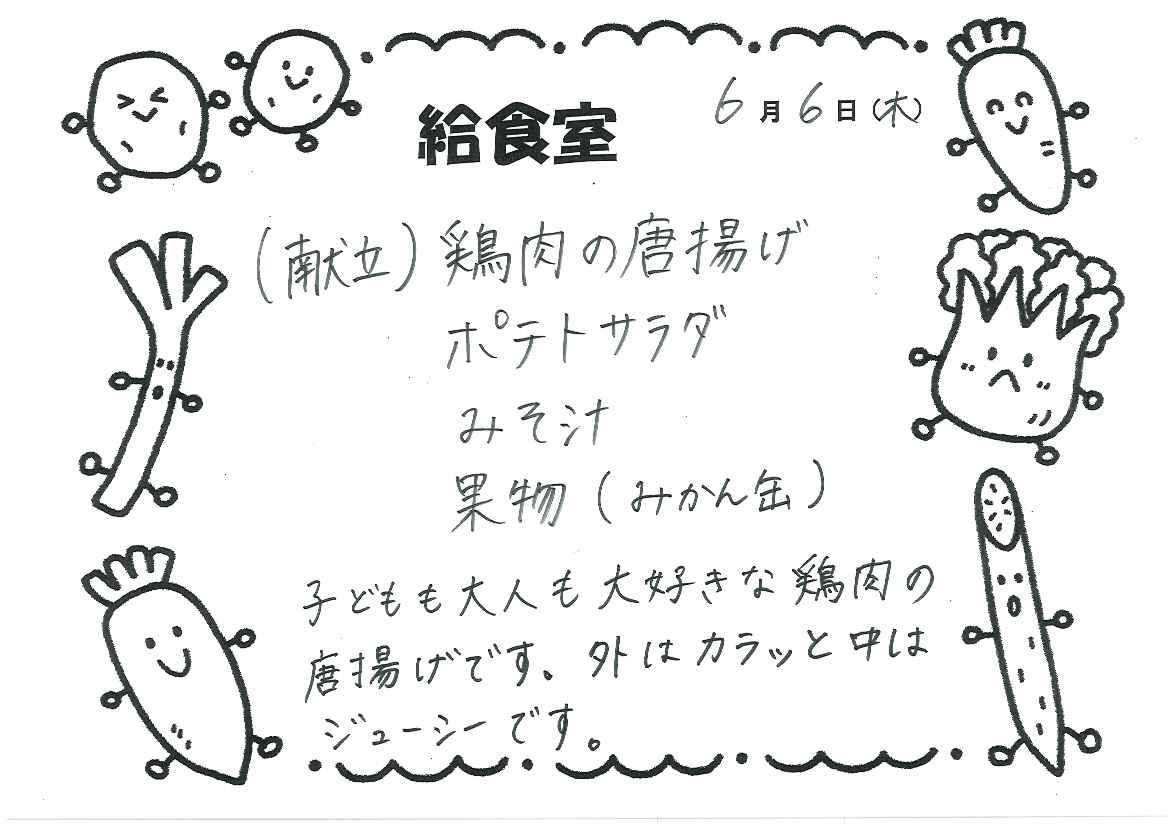 給食室
6月6日(木)
(献立)鶏肉の唐揚げ
ポテトサラダ
みそ汁
果物(みかん缶)
子どもも大人も大好きな鶏肉の
唐揚げです。外はカラッと中は
ジューシーです。